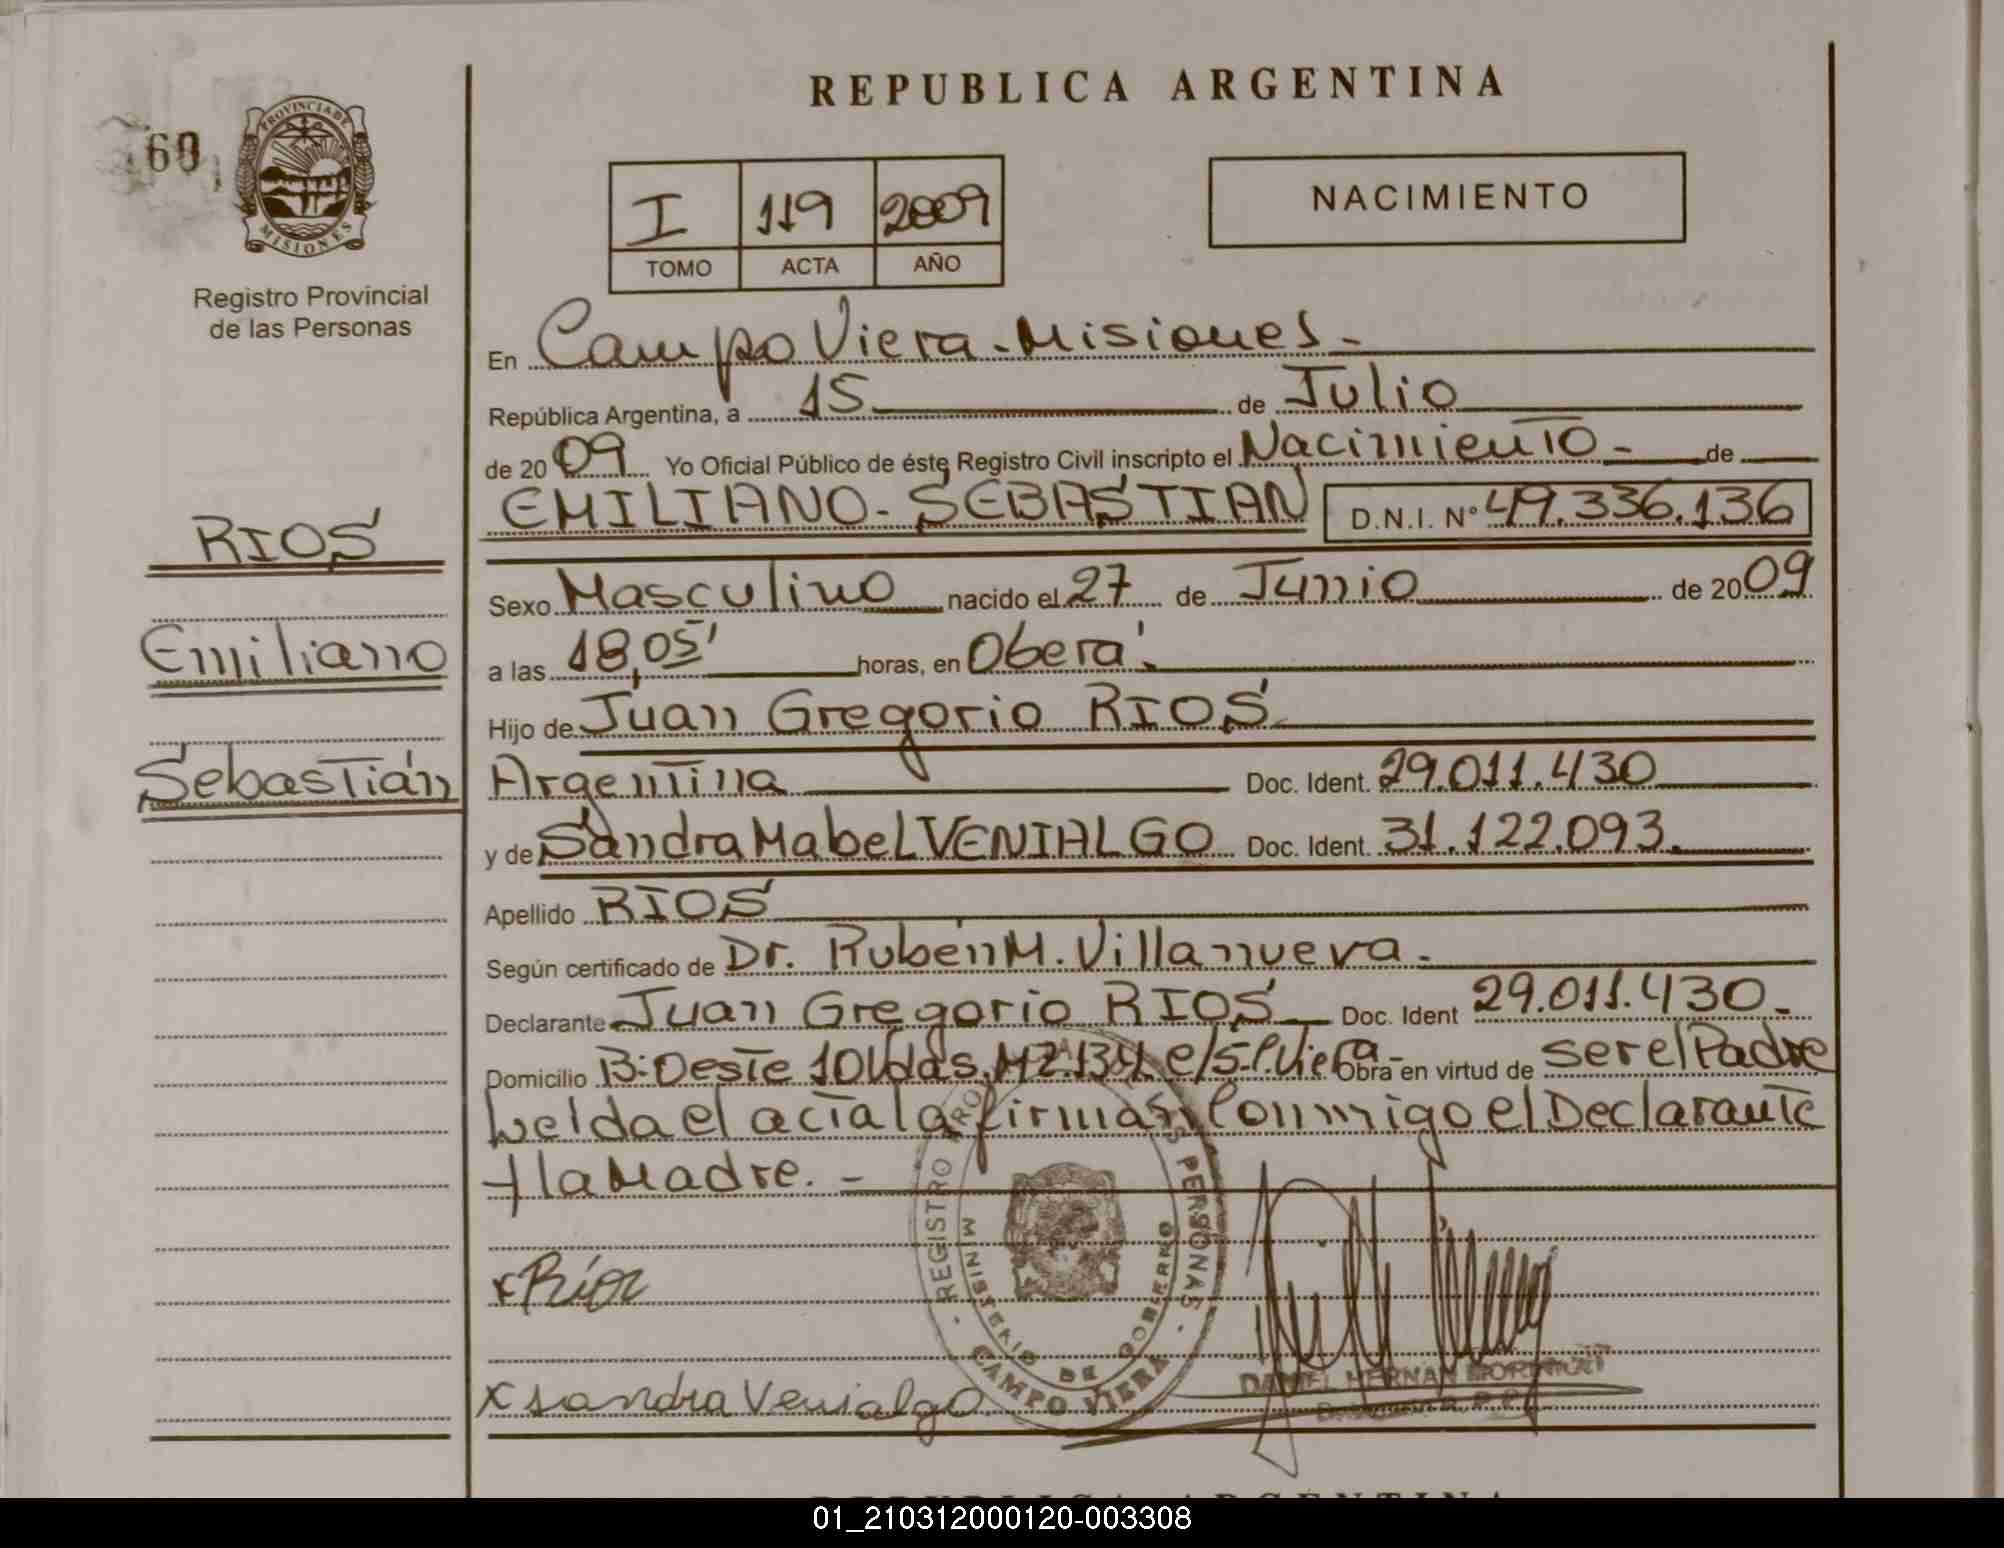 REPUBLICA ARGENTINA
60
PROVINCIA DE MISIONES
Registro Provincial
de las Personas
I 119 2009
TOMO ACTA AÑO
NACIMIENTO
En Campo Viera - Misiones -
República Argentina, a 15 de Julio
de 2009 Yo Oficial Público de éste Registro Civil inscripto el Nacimiento - de
EMILIANO - SEBASTIAN D.N.I. Nº 49.336.136
RIOS
Emiliano
Sebastián
Sexo Masculino nacido el 27 de Junio de 2009
a las 18,05' horas, en Oberá.
Hijo de Juan Gregorio RIOS
Argentina Doc. Ident. 29.011.430
y de Sandra Mabel VENIALGO Doc. Ident. 31.122.093.
Apellido RIOS
Según certificado de Dr. Rubén M. Villanueva.
Declarante Juan Gregorio RIOS Doc. Ident 29.011.430.
Domicilio B: Oeste 10 Vdas. MZ. C/5-P. Viera - Obra en virtud de ser el Padre
Leida el acta la firman Conmigo el Declarante
y la Madre. -
x Ríos
x Sandra Venialgo
REGISTRO PERSONAS
MINISTERIO DE GOBIERNO
CAMPO VIERA
DANIEL HERNAN
REPUBLICA ARGENTINA
01_210312000120-003308